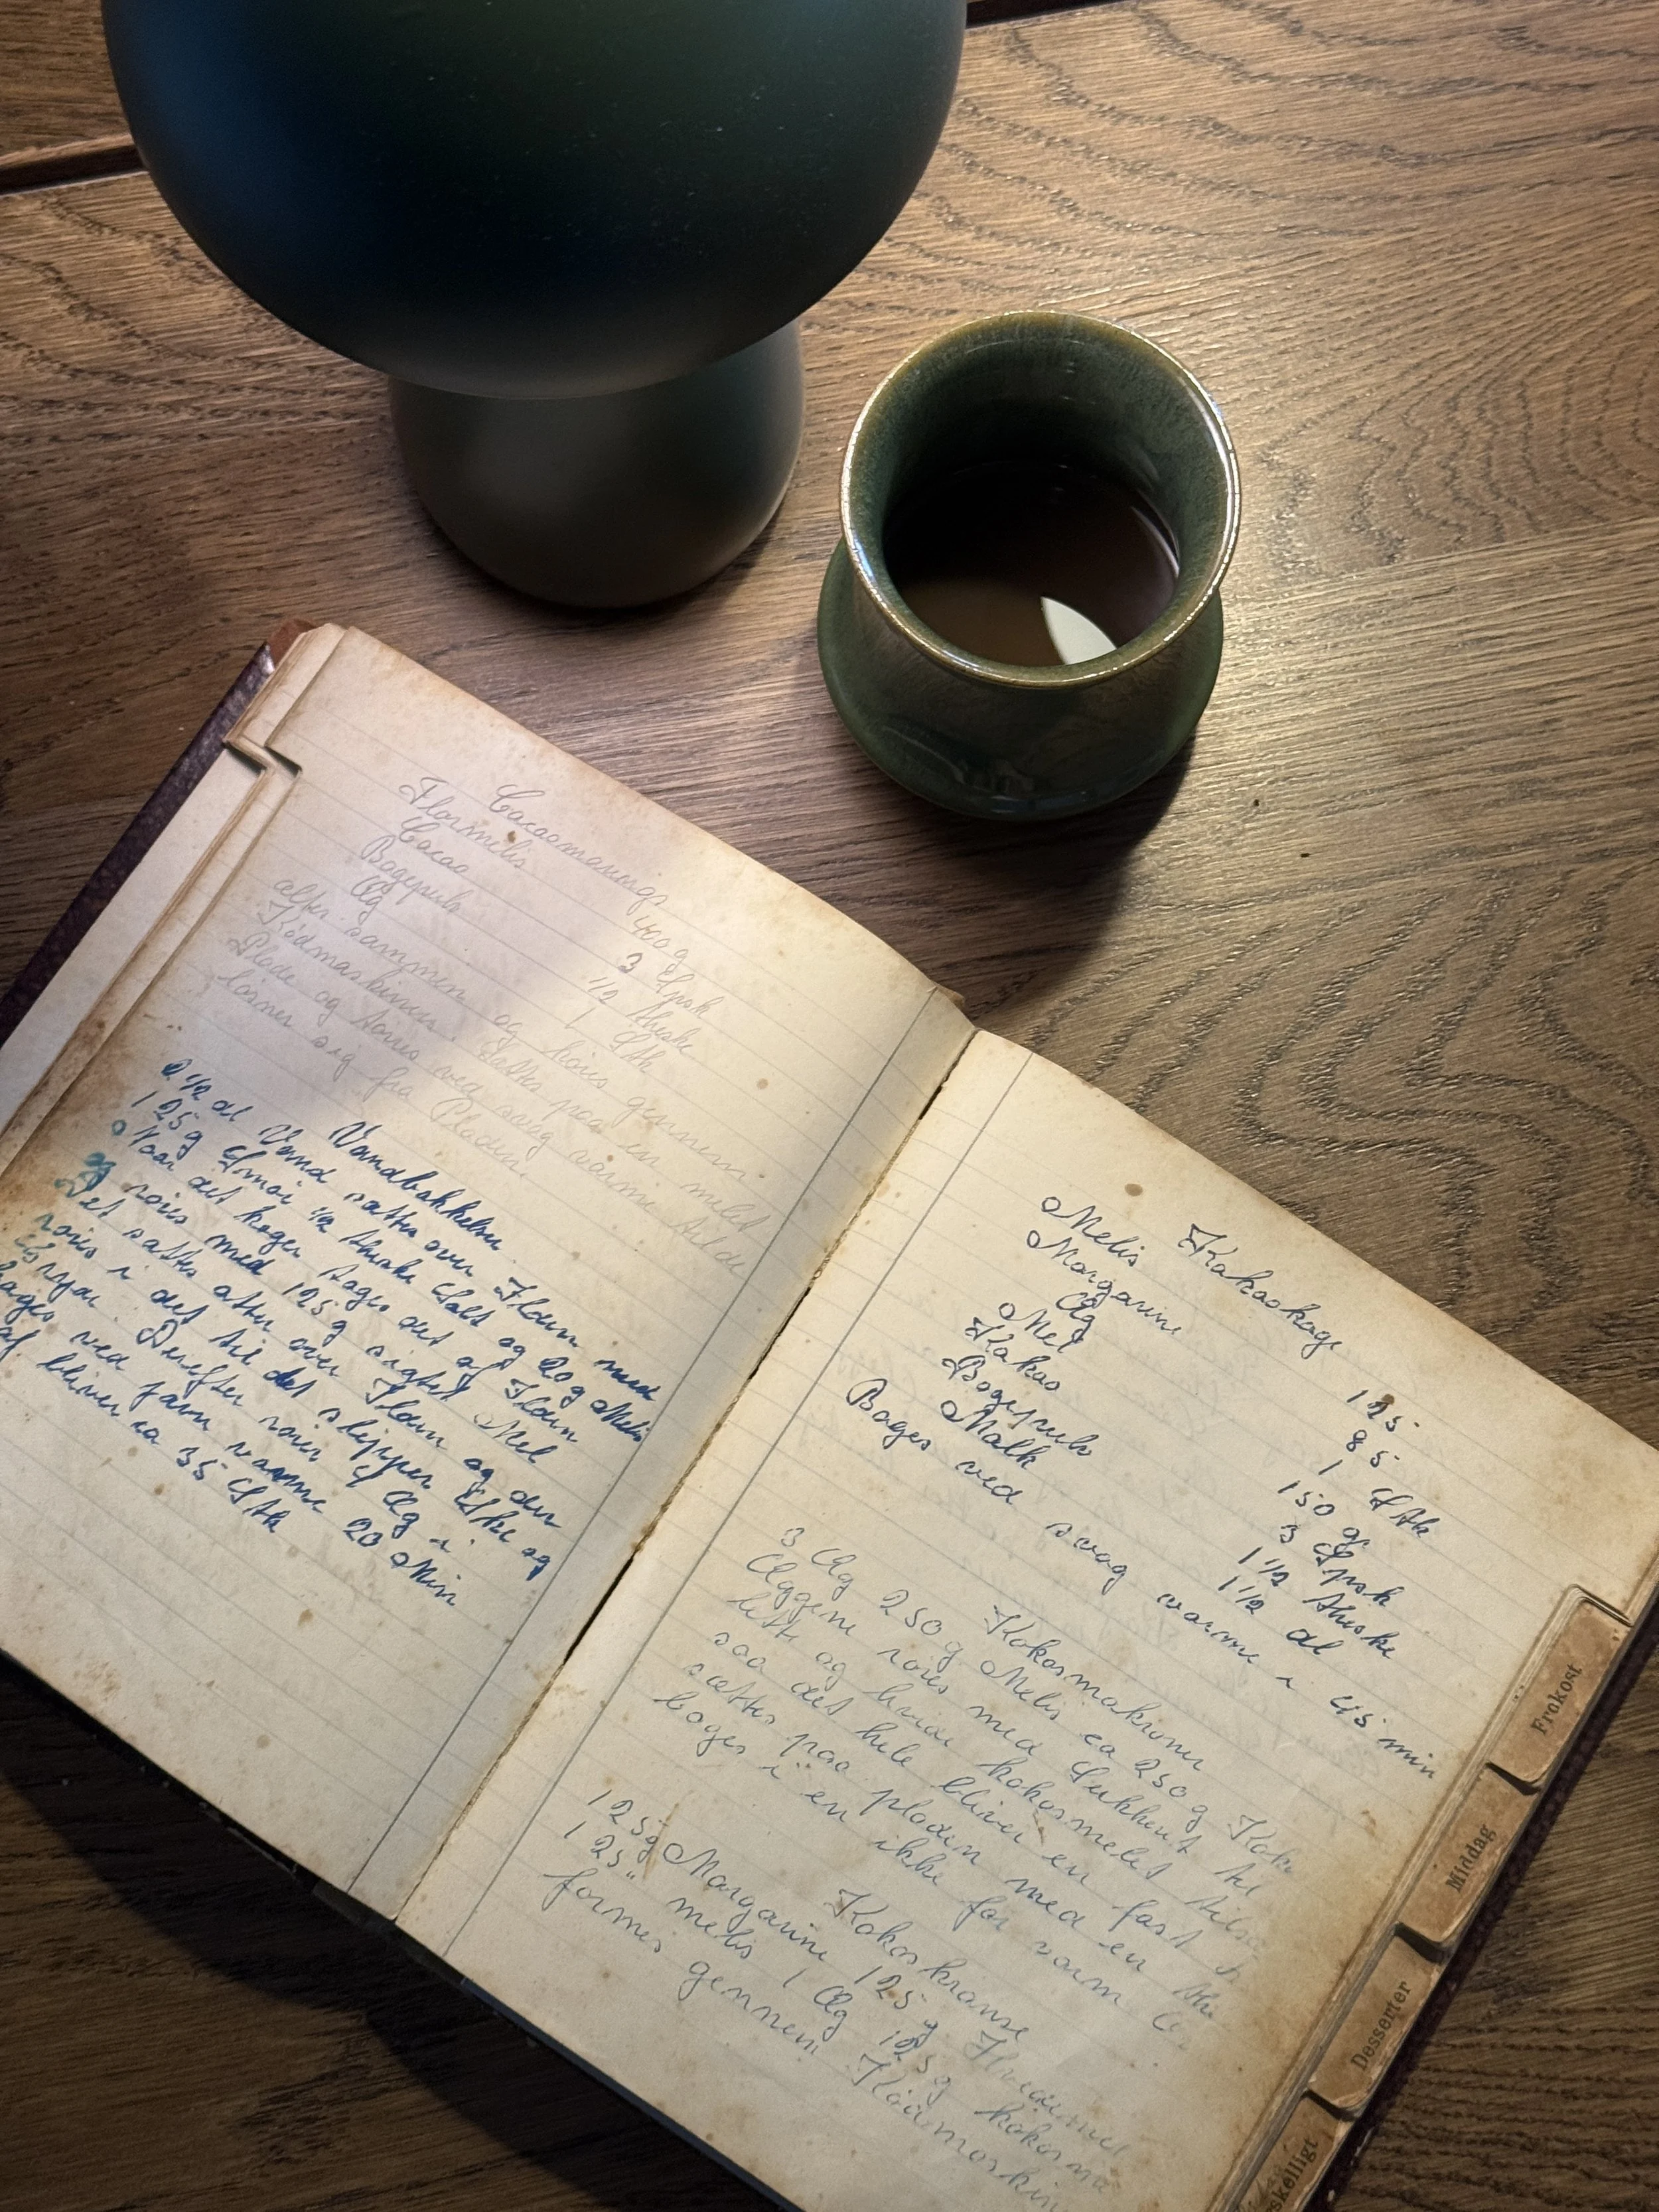 Cacaomarengs
Flormelis 400 g
Cacao 3 Spsk
Bagepulv 1/2 theske
Æg 1 Stk
alt sammen og köres gennem
Ködmaskinen. Sættes paa en melet
Plade og törres ved svag varme til de
lösner sig fra Pladen.
Vandbakkelser
2 1/2 dl Vand sættes over Ilden med
125 g Smör 1/2 theske Salt og 20 g Melis
Naar det koger tages det af Ilden
og röres med 125 g sigtet Mel
Det sættes atter over Ilden og der
röres i det til det slipper Ske og
Gryde Derefter röres 4 Æg i.
bages ved jævn varme 20 Min
af bliver ca 35 Stk
Kakaokage
Melis 125
Margarine 85
Æg 1 Stk
Mel 150 gr
Kakao 3 Spsk
Bagepulv 1 1/2 theske
Mælk 1 1/2 dl
Bages ved svag varme i 45 min
Kokosmakroner
3 Æg 250 g Melis ca 250 g Koko
Æggene röres med Sukkeret til
lett og hvide kokosmelet tils
saa det hele bliver en fast
sættes paa pladen med en the
bages i en ikke for varm
Kokoskranse
125 g Margarine 125 g Hvedemel
125 " melis 1 Æg 125 g kokosme
formes gennem Ködmaskin
Frokost
Middag
Desserter
skelligt